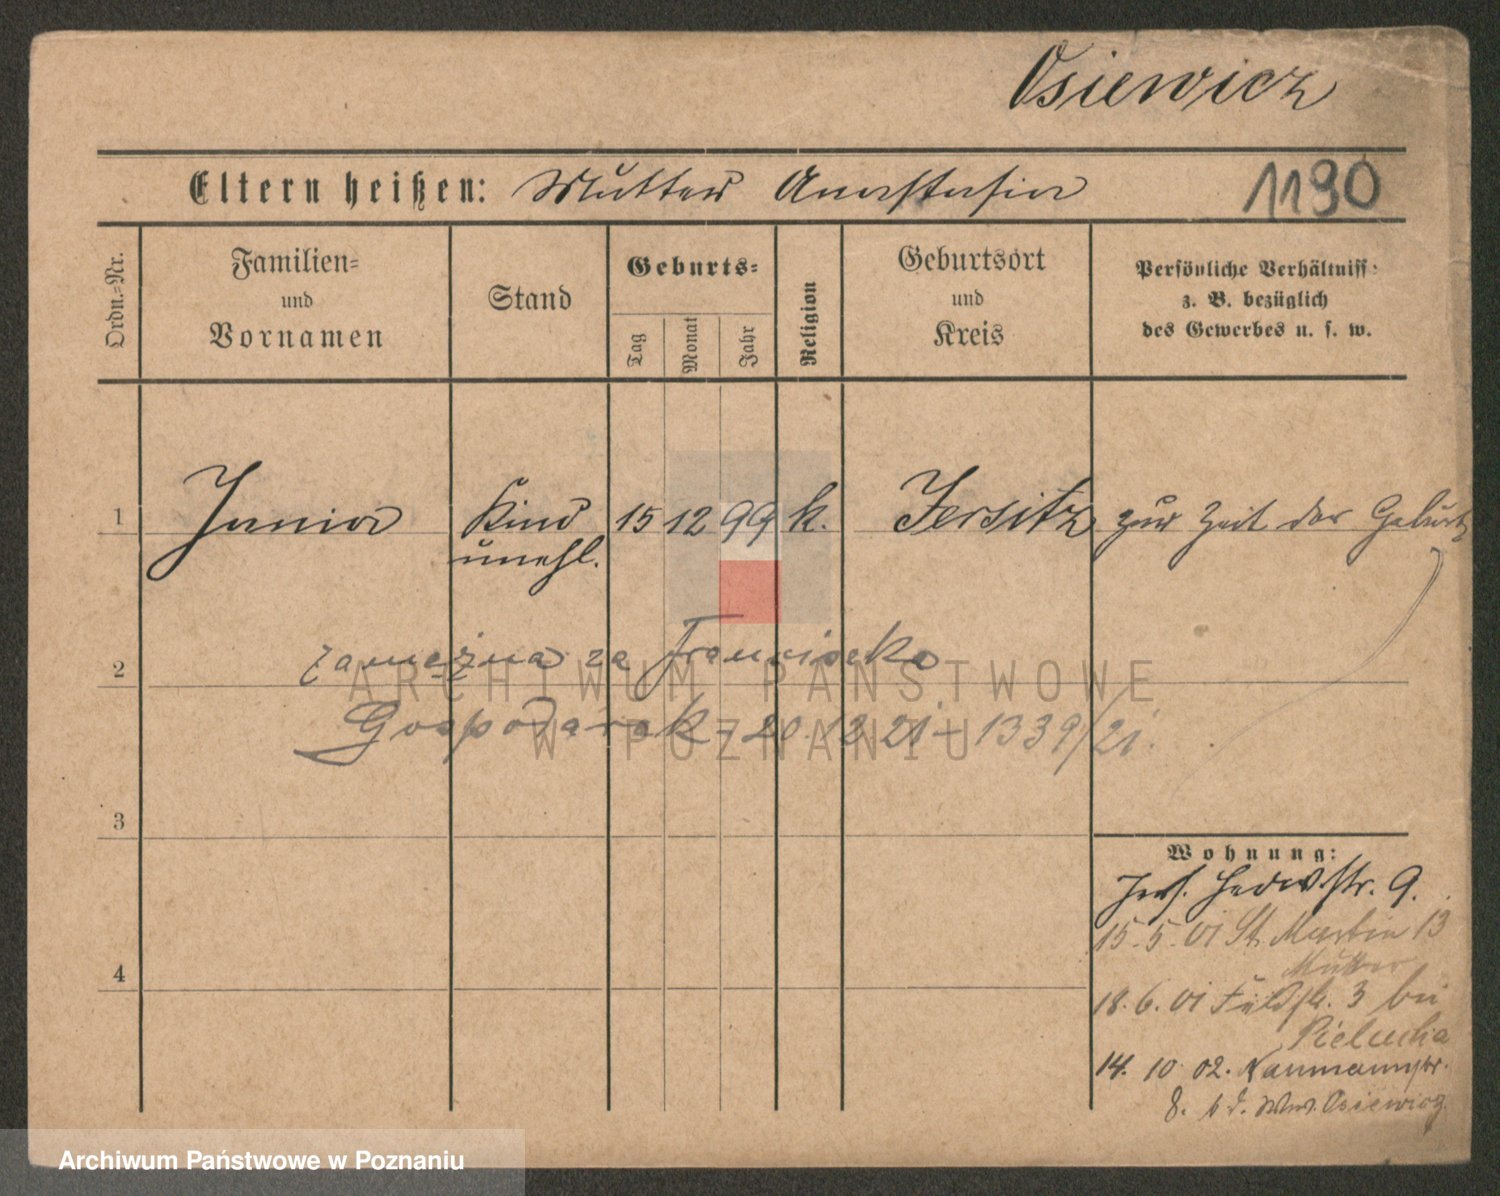 Osiewicz
Eltern heißen: Mutter Anastasia 1190
Ordn.=Nr.
Familien=
und
Vornamen
Stand
Geburts=
Tag
Monat
Jahr
Religion
Geburtsort
und
Kreis
Persönliche Verhältniss:
z. B. bezüglich
des Gewerbes u. s. w.
1 Junia Kind 15 12 99 k. Jersitz zur Zeit der Geburt
unehl.
2 zamężna za Franciszka
Gospodarek - 20.12 21 - 1339/21.
3
Wohnung:
Jers. Hedw.str. 9.
15. 5. 01 St. Martin 13
Mutter
4
18. 6. 01 Feldstr. 3 bei
Pielucha
14. 10 02. Naumannstr.
8. b d. Ww. Osiewicz
ARCHIWUM PAŃSTWOWE
W POZNANIU
Archiwum Państwowe w Poznaniu